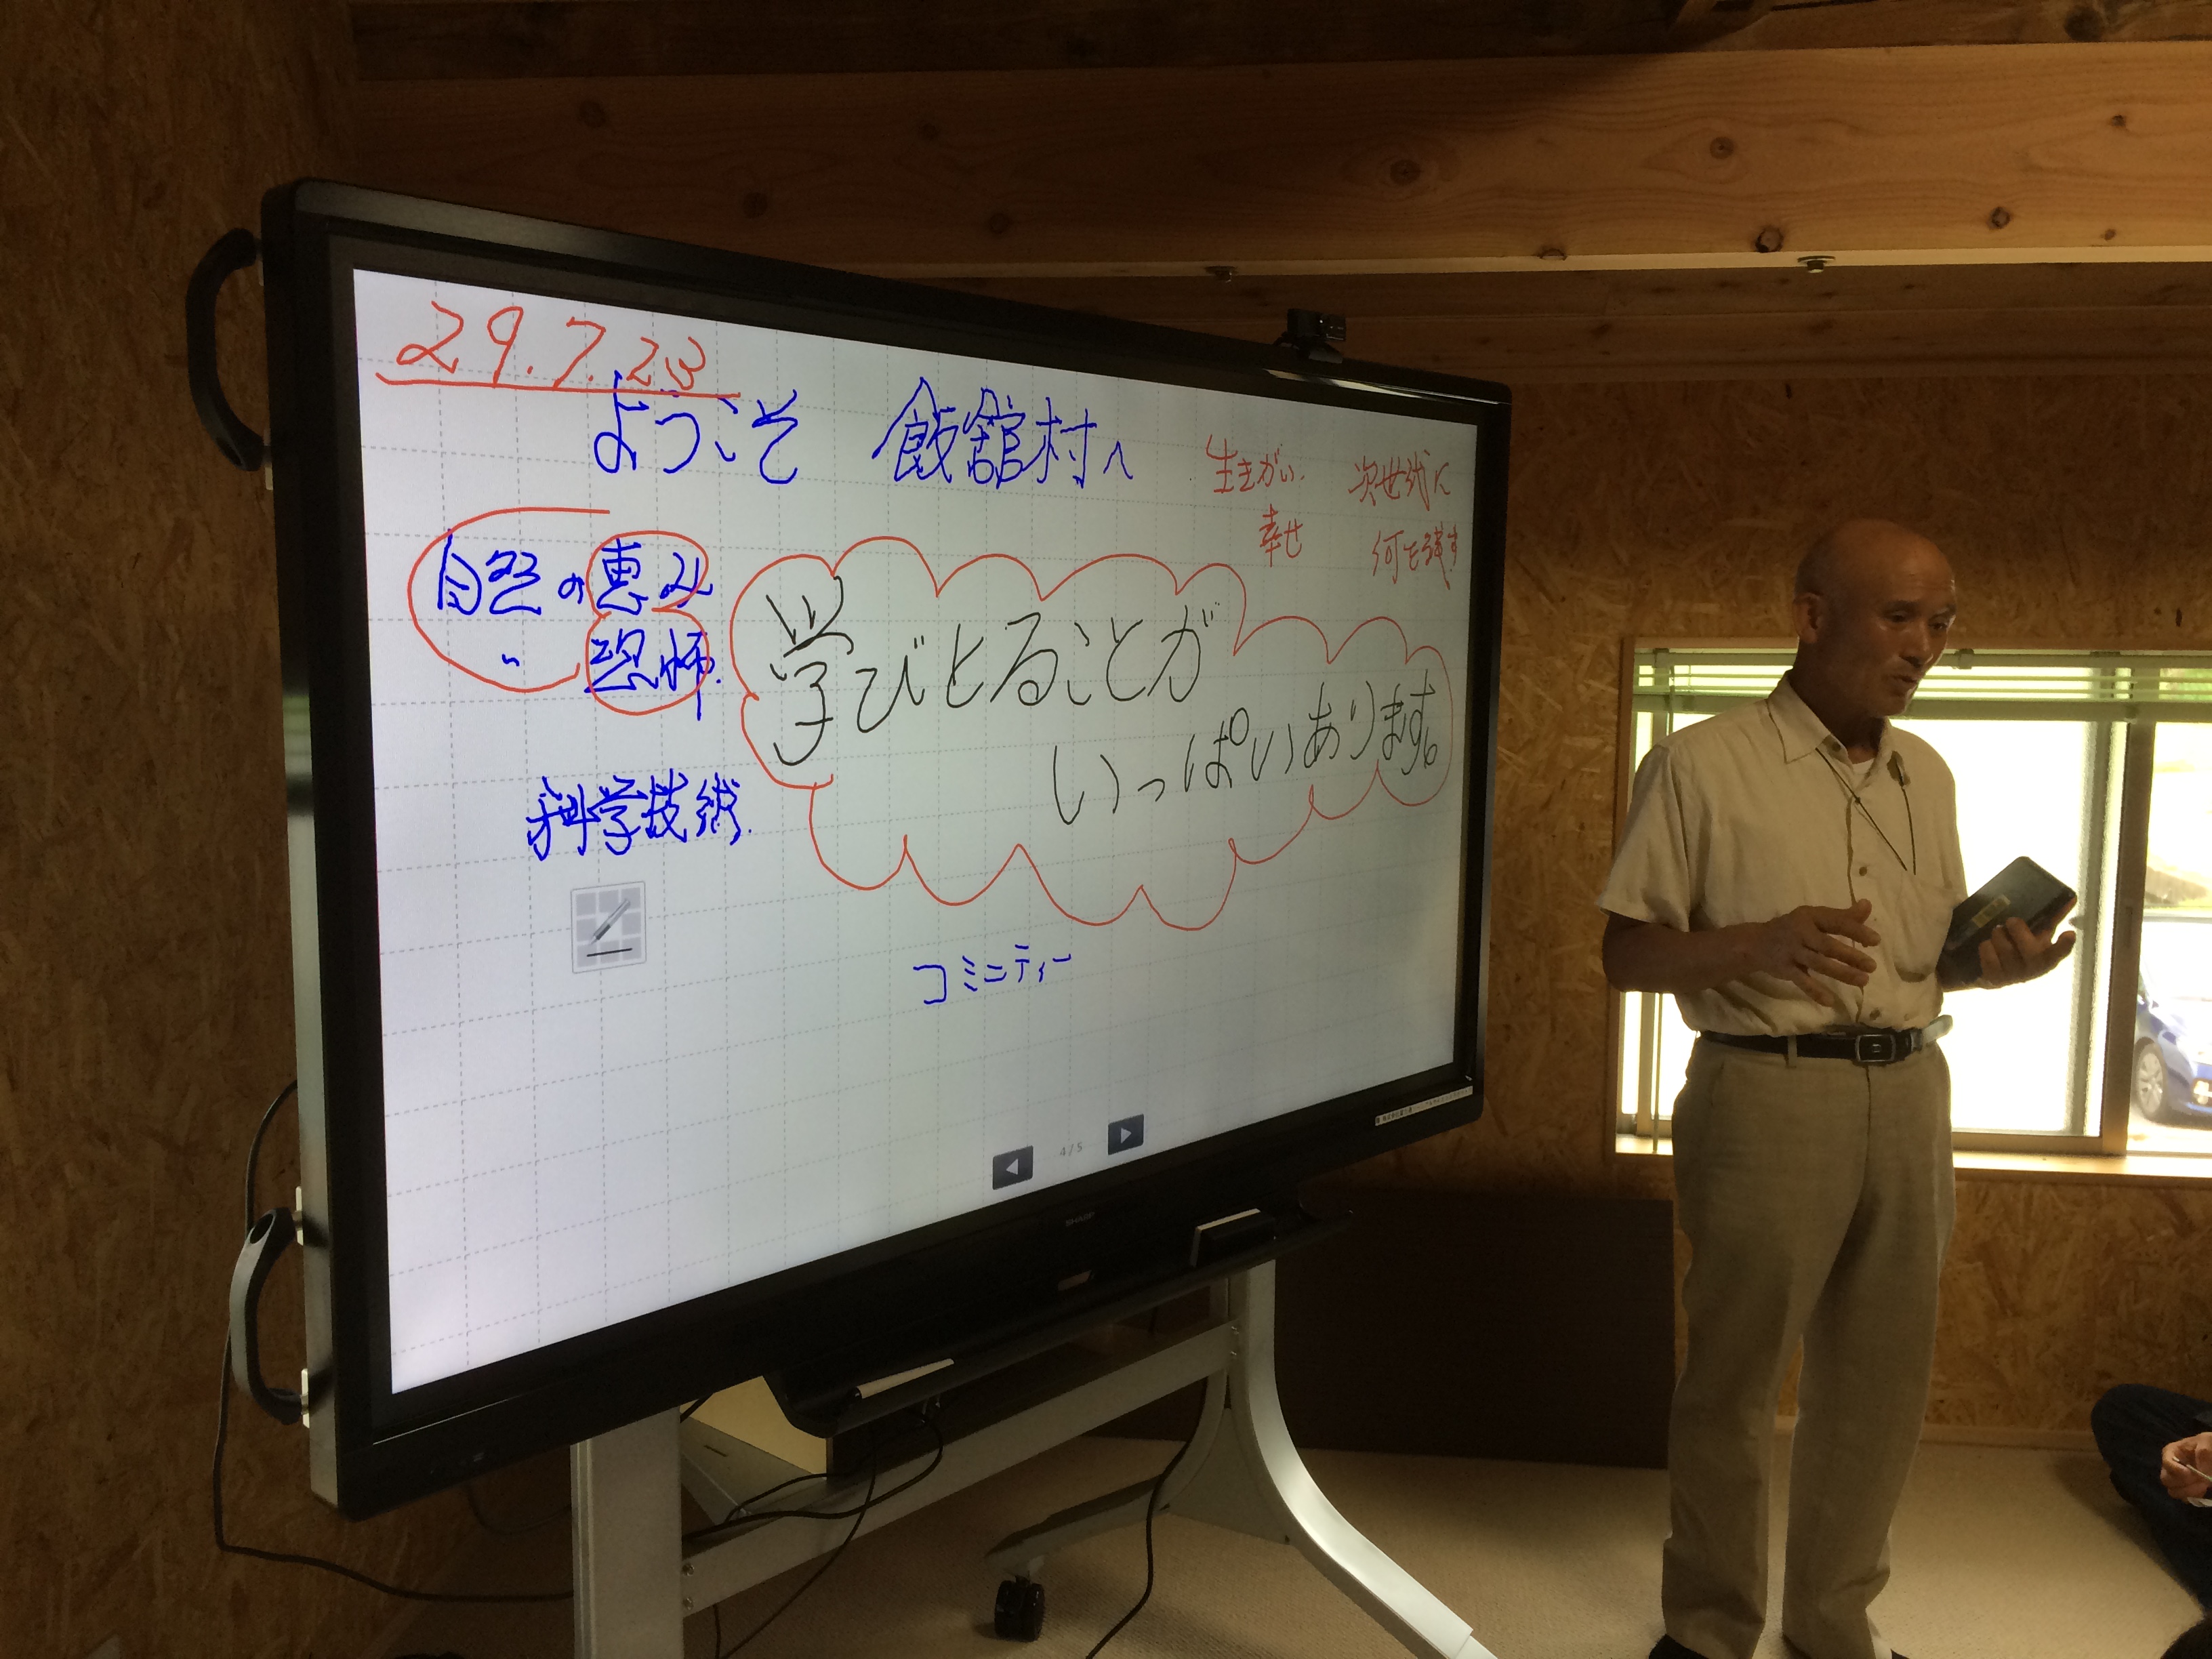 29.7.23
ようこそ 飯舘村へ
生きがい.
幸せ
次世代に
何を残す
自然の恵み
〃 恐怖.
学びとることが
いっぱいあります。
科学技術.
コミニティー
4/5
SHARP